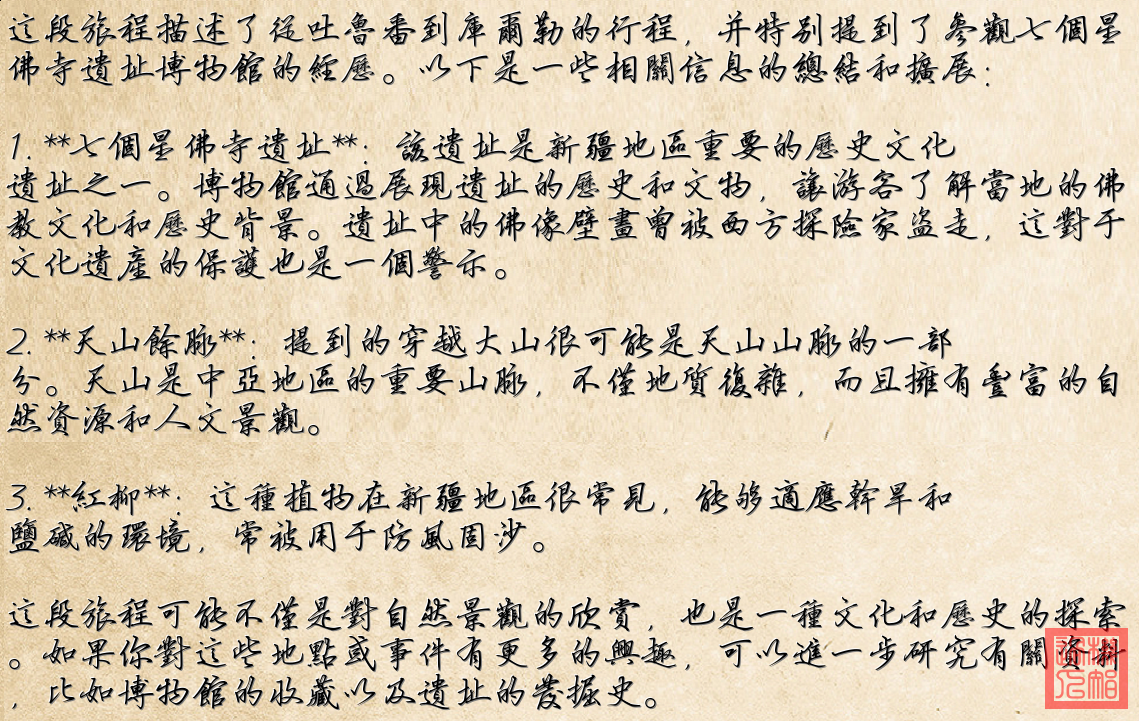 這段旅程描述了從吐魯番到庫爾勒的行程，并特別提到了參觀七個星
佛寺遺址博物館的經歷。以下是一些相關信息的總結和擴展：
1. **七個星佛寺遺址**：該遺址是新疆地區重要的歷史文化
遺址之一。博物館通過展現遺址的歷史和文物，讓游客了解當地的佛
教文化和歷史背景。遺址中的佛像壁畫曾被西方探險家盜走，這對于
文化遺產的保護也是一個警示。
2. **天山餘脉**：提到的穿越大山很可能是天山山脉的一部
分。天山是中亞地區的重要山脉，不僅地質復雜，而且擁有豐富的自
然資源和人文景觀。
3. **紅柳**：這種植物在新疆地區很常見，能够適應幹旱和
鹽碱的環境，常被用于防風固沙。
這段旅程可能不僅是對自然景觀的欣賞，也是一種文化和歷史的探索
。如果你對這些地點或事件有更多的興趣，可以進一步研究有關資料
，比如博物館的收藏以及遺址的發掘史。